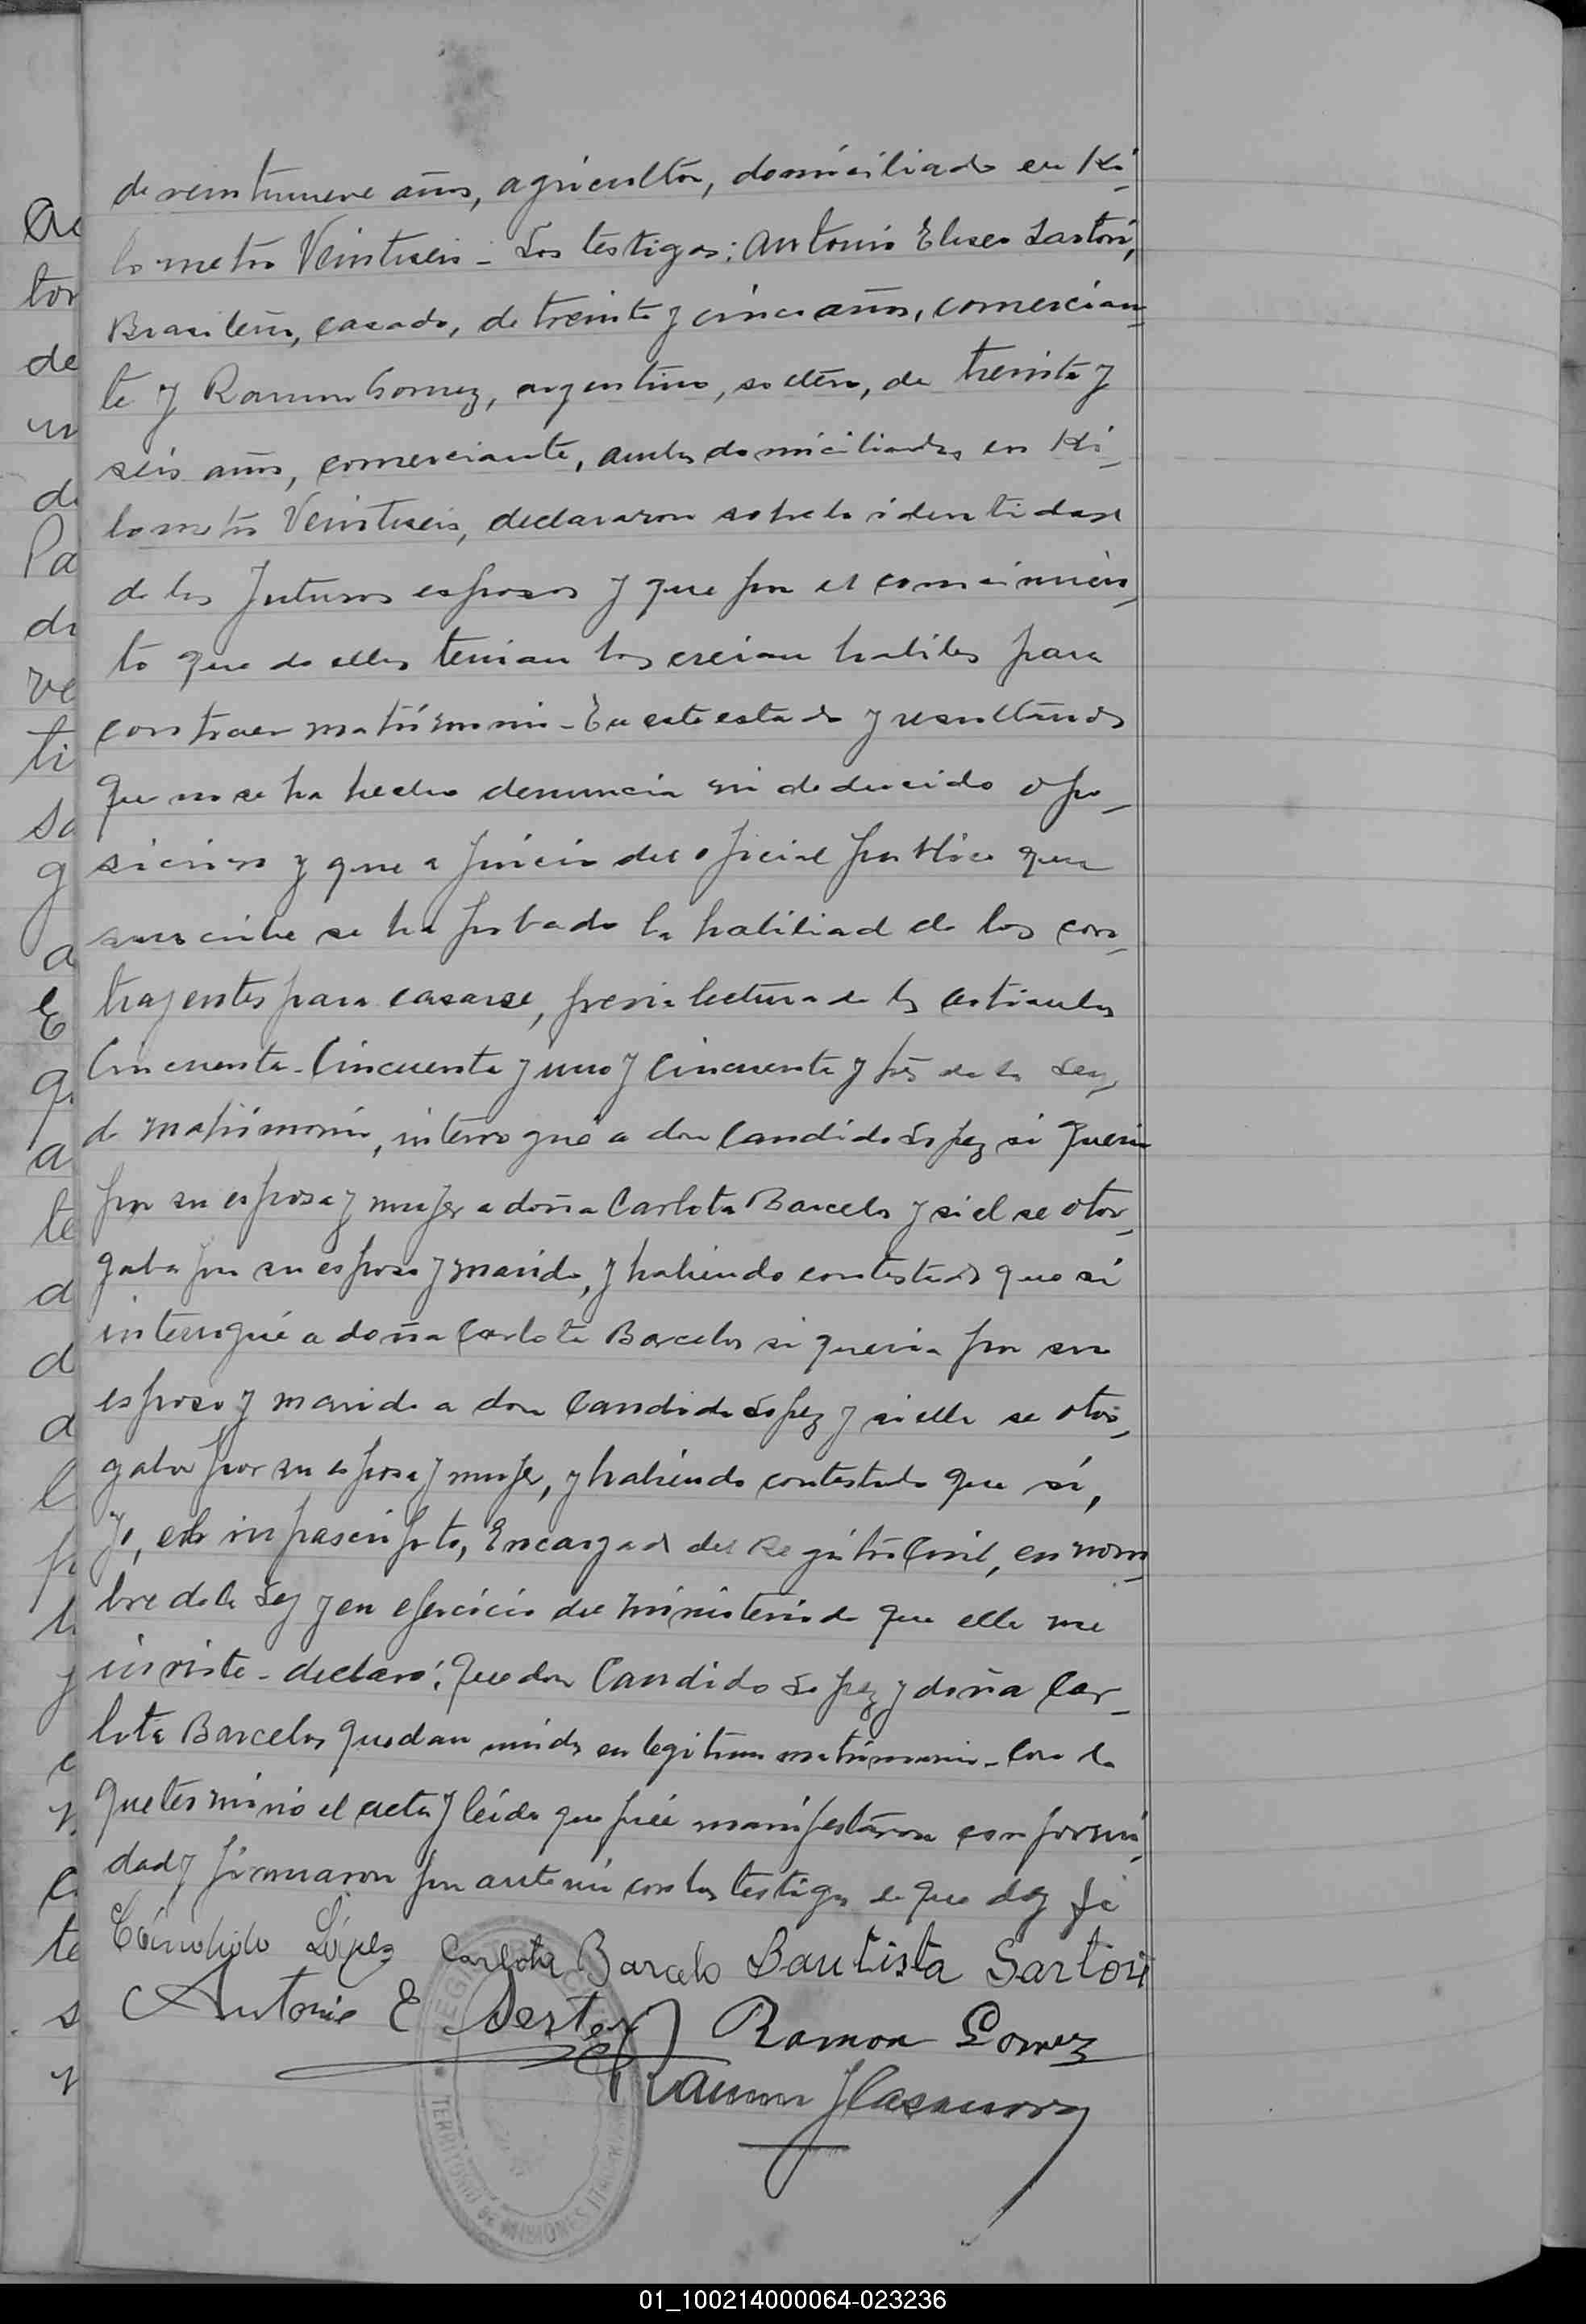 de veintinueve años, agricultor, domiciliado en Ki-
lometro Veintiseis - Los testigos: Antonio Eliseo Sartori,
Brasilero, casado, de treinta y cinco años, comercian-
te y Ramon Gomez, argentino, soltero, de treinta y
seis años, comerciante, ambos domiciliados en Ki-
lometro Veintiseis, declararon sobre la identidad
de los futuros esposos y que por el conocimien-
to que de ellos tenian los creian habiles para
contraer matrimonio - En este estado y resultando
que no se ha hecho denuncia ni deducido opo-
sicion y que a juicio del oficial publico que
suscribe se ha probado la habiliad de los con-
trayentes para casarse, previa lectura de los articulos
Cincuenta - Cincuenta y uno y Cincuenta y tres de la Ley
de matrimonio, interrogué a don Candido Lopez si queria
por su esposa y mujer a doña Carlota Barcelo y si el se otor-
gaba por su esposo y marido, y habiendo contestado que si
interrogué a doña Carlota Barcelo si queria por su
esposo y marido a don Candido Lopez y si ella se otor-
gaba por su esposa y mujer, y habiendo contestado que si,
Yo, el infrascripto, Encargado del Registro Civil, en nom-
bre de la Ley y en ejercicio del ministerio de que ella me
inviste - declaró: Que don Candido Lopez y doña Car-
lota Barcelo quedan unidos en legitimo matrimonio - Con lo
que terminó el acta y leida que fué manifestaron conformi-
dad y firmaron por ante mi con los testigos de que doy fé
Cándido López Carlota Barcelo Bautista Sartori
Antonio E Sartori Ramon Gomez
Ramon J Casanova
TERRITORIO DE MISIONES
01_100214000064-023236